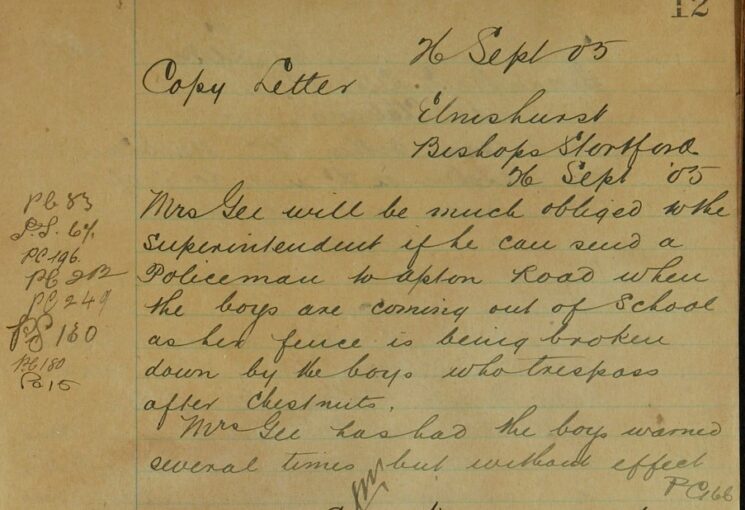 12
26 Sept 05
Copy Letter
Elmshurst
Bishops Stortford
26 Sept '05
Mrs Gee will be much obliged to the
Superintendent if he can send a
Policeman to Apton Road when
the boys are coming out of School
as her fence is being broken
down by the boys who trespass
after Chestnuts.
Mrs Gee has had the boys warned
several times but without effect
PC 83
P.S. 64
PC 196
PC 249
PS 180
PC 180
PC 15
PC 166